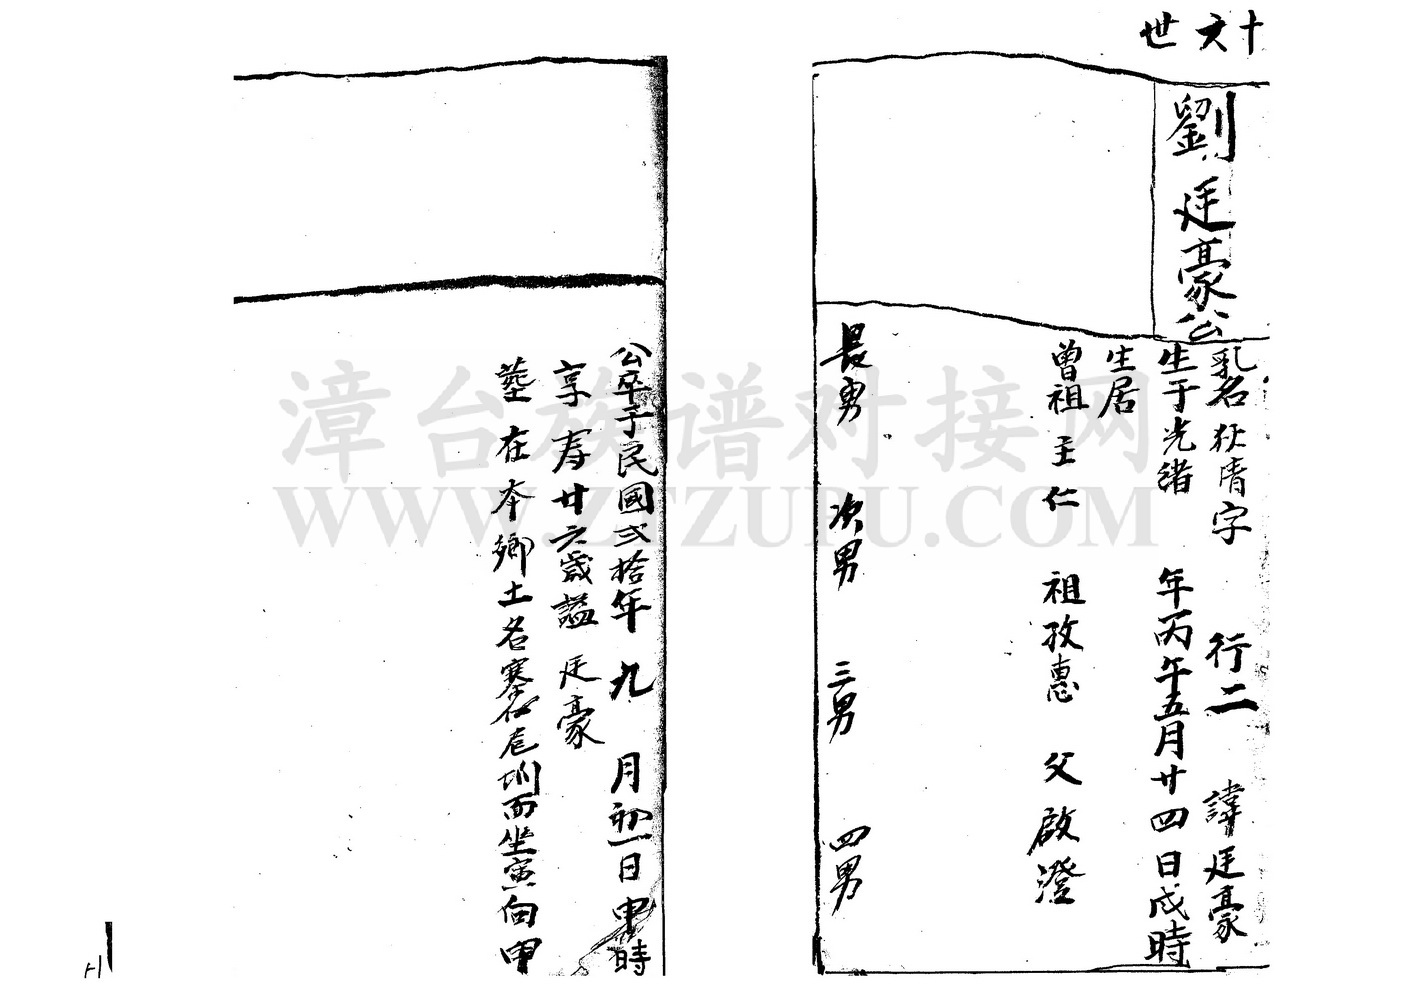 十六世
劉廷豪公
乳名狄清字 行二 諱廷豪
生于光緒 年丙午五月廿四日戌時
生居
曾祖王仁 祖孜惠 父啟澄
長男 次男 三男 四男
公卒于民國弍拾年九月初一日申時
享寿廿六歲諡廷豪
塟在本鄉土名寨仔 圳面坐寅向申
漳台族谱对接网
WWW.ZTZUPU.COM